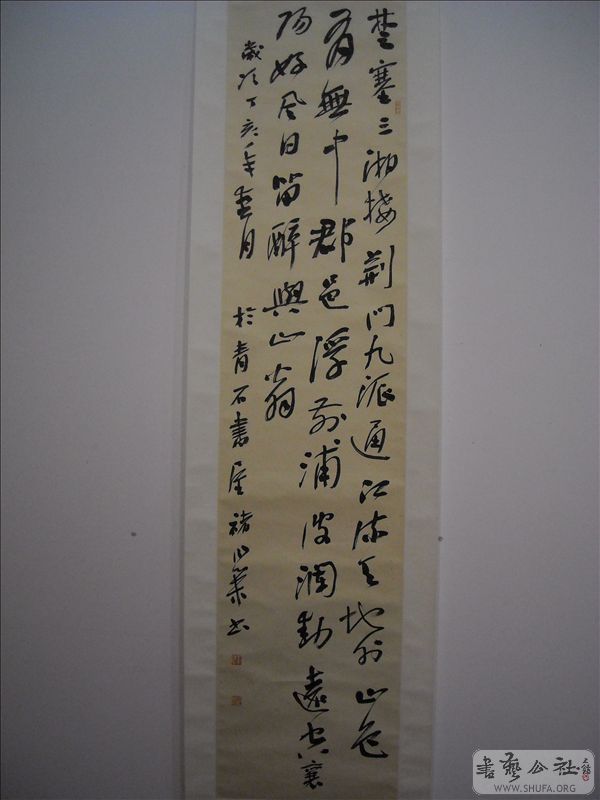 楚塞三湘接荊門九派通江流天地外山色
有無中郡邑浮前浦波瀾動遠空襄
陽好風日留醉與山翁
歲次丁亥年月於青石書屋褚書
書藝公社
WWW.SHUFA.ORG